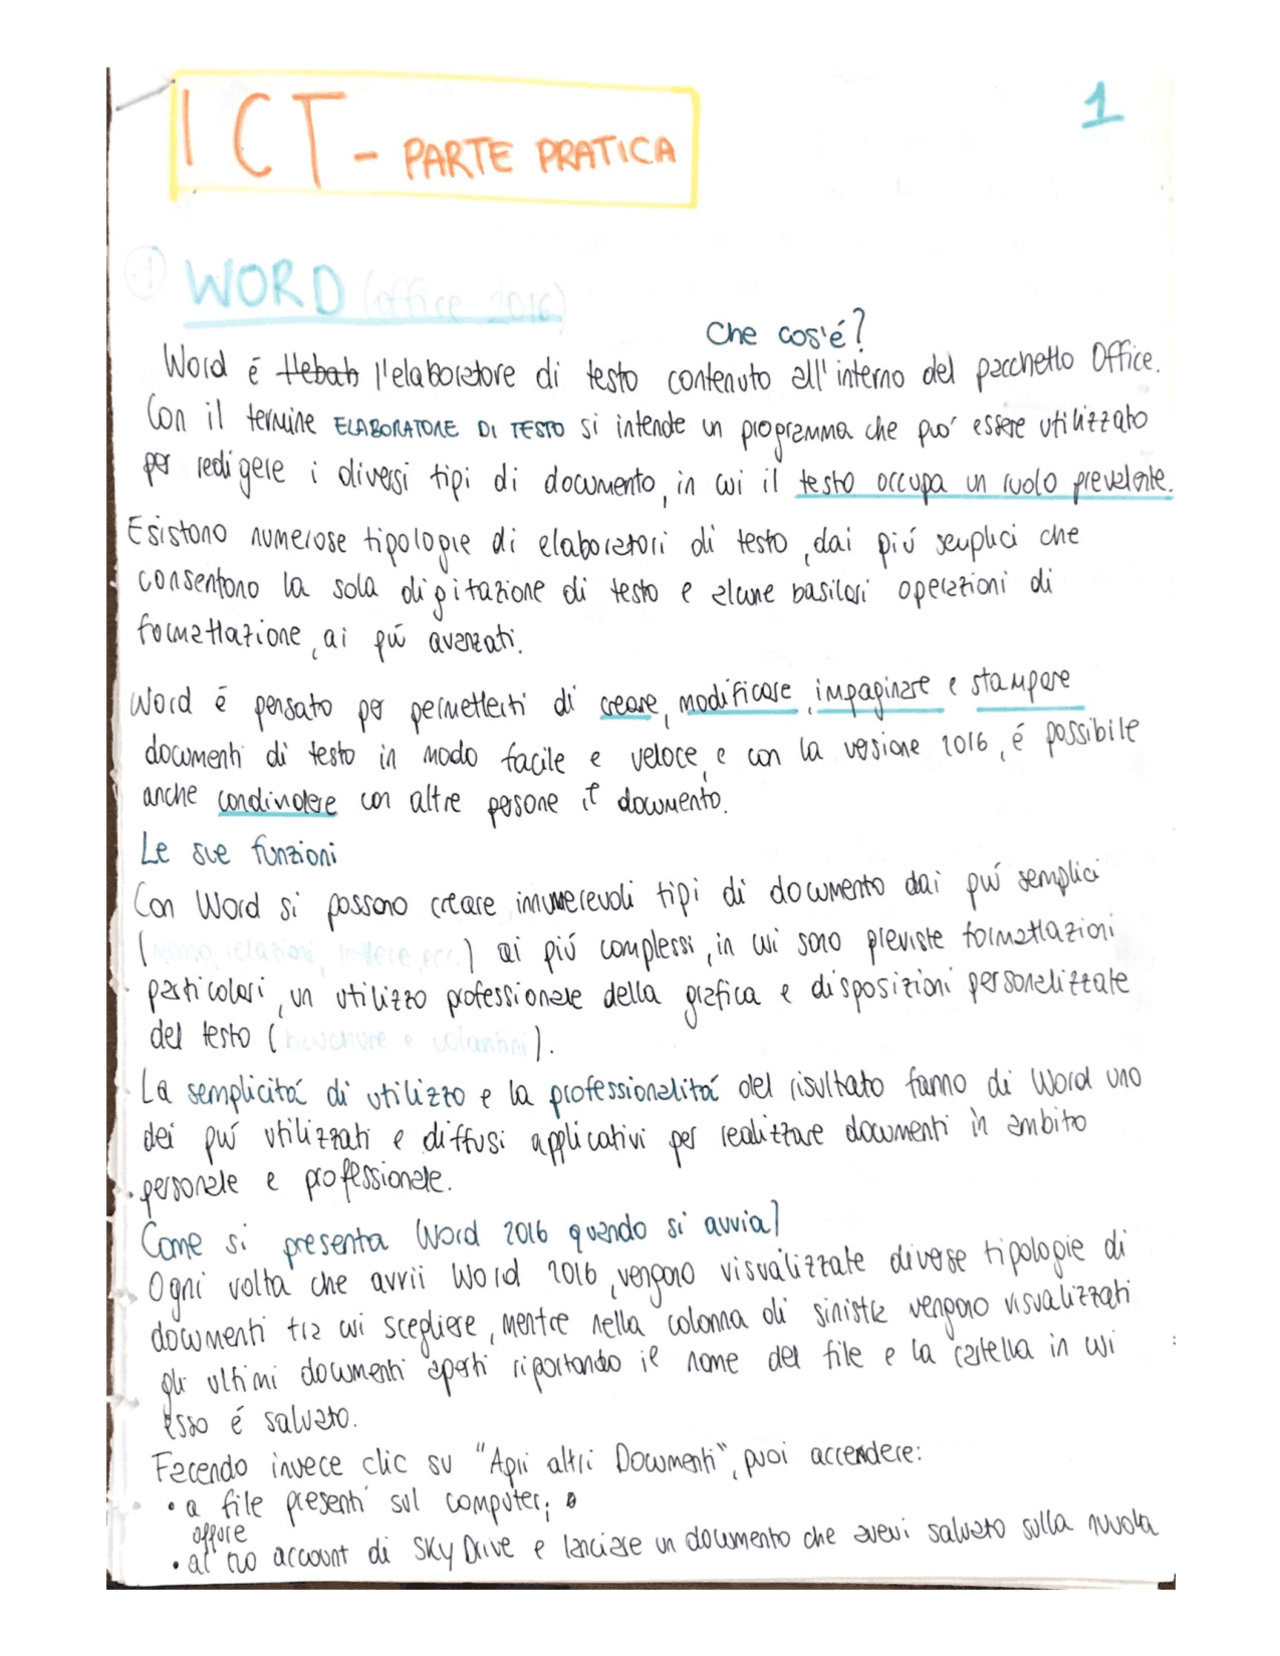 1
ICT - PARTE PRATICA
① WORD (office 2016)
Che cos'é?
Word é l'elaboratore di testo contenuto all'interno del pacchetto Office.
Con il termine ELABORATORE DI TESTO si intende un programma che puo' essere utilizzato
per redigere i diversi tipi di documento, in cui il testo occupa un ruolo prevalente.
Esistono numerose tipologie di elaboratori di testo, dai piú semplici che
consentono la sola digitazione di testo e alcune basilari operazioni di
formattazione, ai piú avanzati.
Word é pensato per permetterti di creare, modificare, impaginare e stampare
documenti di testo in modo facile e veloce, e con la versione 2016, é possibile
anche condividere con altre persone il documento.
Le sue funzioni
Con Word si possono creare innumerevoli tipi di documento dai piú semplici
(memo, relazioni, lettere, ecc.) ai piú complessi, in cui sono previste formattazioni
particolari, un utilizzo professionale della grafica e disposizioni personalizzate
del testo (brochure e volantini).
La semplicitá di utilizzo e la professionalitá del risultato fanno di Word uno
dei piú utilizzati e diffusi applicativi per realizzare documenti in ambito
personale e professionale.
Come si presenta Word 2016 quando si avvia?
Ogni volta che avvii Word 2016, vengono visualizzate diverse tipologie di
documenti tra cui scegliere, mentre nella colonna di sinistra vengono visualizzati
gli ultimi documenti aperti riportando il nome del file e la cartella in cui
esso é salvato.
Facendo invece clic su "Apri altri Documenti", puoi accendere:
• a file presenti sul computer;
oppure
• al tuo account di SkyDrive e lanciare un documento che avevi salvato sulla nuvola